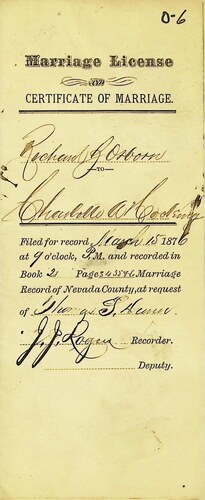 D-6
Marriage License
AND
CERTIFICATE OF MARRIAGE.
Richard B Osborn
TO
Charlotte A Hocking
Filed for record, March 15 1876
at 9 o'clock, P.M. and recorded in
Book 2 Page 345 & 6 Marriage
Record of Nevada County, at request
of Thomas
J. J. Rogers Recorder.
Deputy.